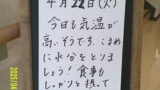 4月22日(火)
今日も気温が
高いそうです。こまめ
に水分をとりま
しょう！食事も
しっかりと摂って